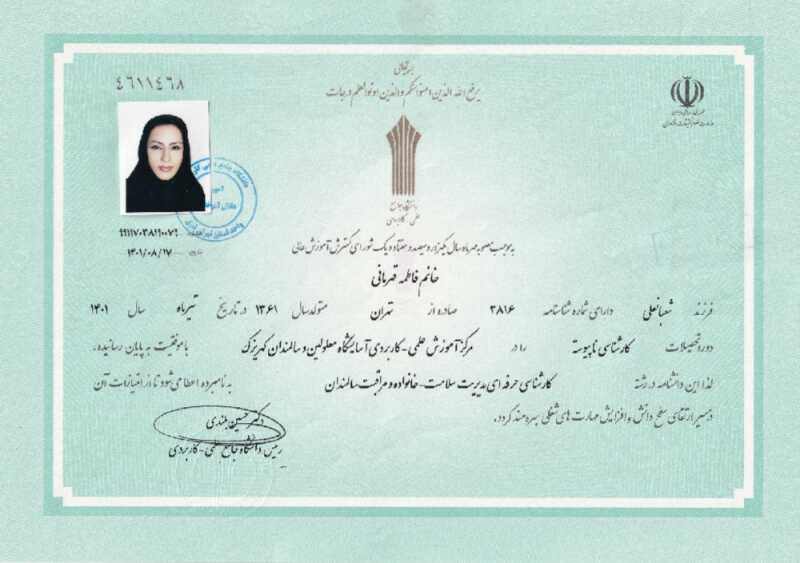 بسمه تعالی
یرفع الله الذین امنوا منکم و الذین اوتوا العلم درجات
۴۶۱۱۴۶۸
جمهوری اسلامی ایران
وزارت علوم، تحقیقات و فناوری
دانشگاه جامع
علمی کاربردی
۹۹۱۱۷۰۳۸۱۹۰۰۷۹
۱۴۰۱/۰۸/۱۷
به موجب مصوبه مهرماه سال یکهزار و سیصد و هفتاد و یک شورای گسترش آموزش عالی
خانم فاطمه قهرمانی
فرزند شعبانعلی دارای شماره شناسنامه ۳۸۱۶ صادره از تهران متولد سال ۱۳۶۱ در تاریخ تیرماه سال ۱۴۰۱
دوره تحصیلات کارشناسی ناپیوسته را در مرکز آموزش علمی - کاربردی آسایشگاه معلولین و سالمندان کهریزک با موفقیت به پایان رسانیده.
لذا این دانشنامه در رشته کارشناسی حرفه ای مدیریت سلامت - خانواده و مراقبت سالمندان به نامبرده اعطا می شود تا از امتیازات آن
در مسیر ارتقای سطح دانش و افزایش مهارت های شغلی بهره مند گردد.
دکتر حسین بلندی
رییس دانشگاه جامع علمی - کاربردی